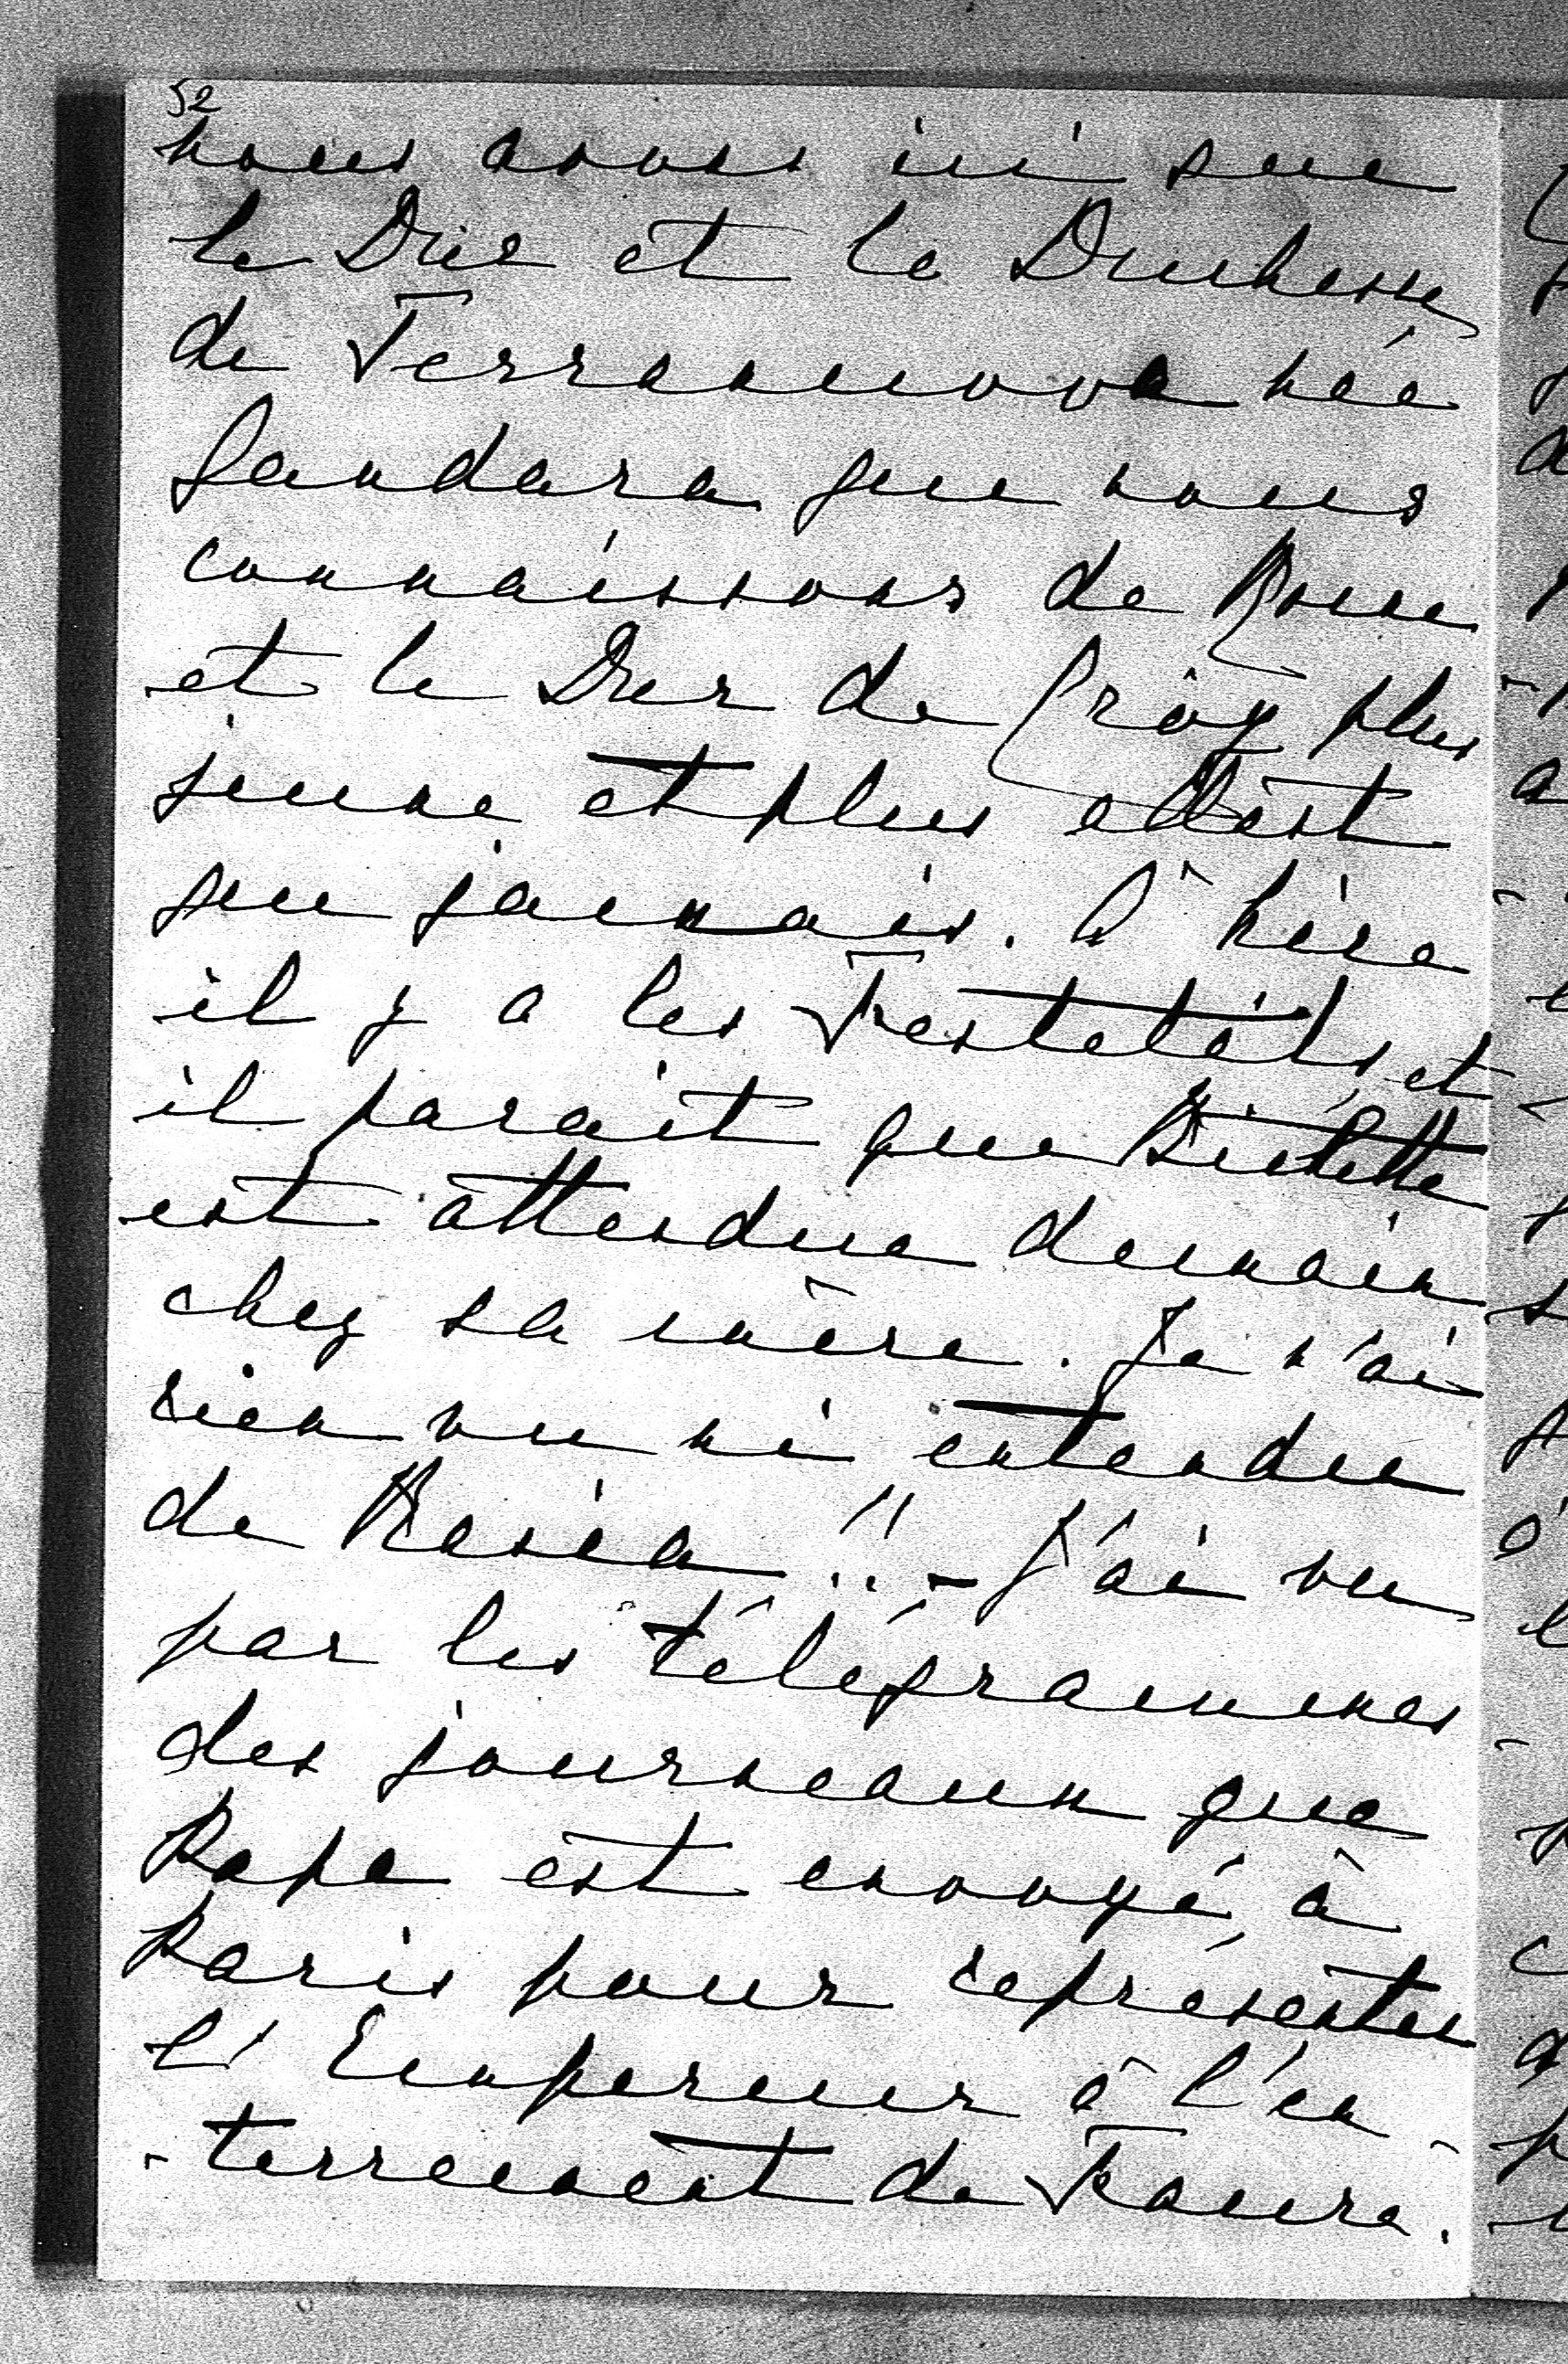 52
nous avons ici que
le Duc et la Duchesse
de Terranuova née
Gandara que nous
connaissons de Rome
et le Duc de Croÿ plus
jeune et plus
que jamais. A Nice
il y a les Festetits, et
il parait que
est attendue demain
chez sa mère. Je n'ai
rien vu ni entendu
de !! - J'ai vu
par les télégrammes
des journaux que
Pape est envoyé à
Paris pour représenter
l'Empereur à l'en
-terrement de Faure.